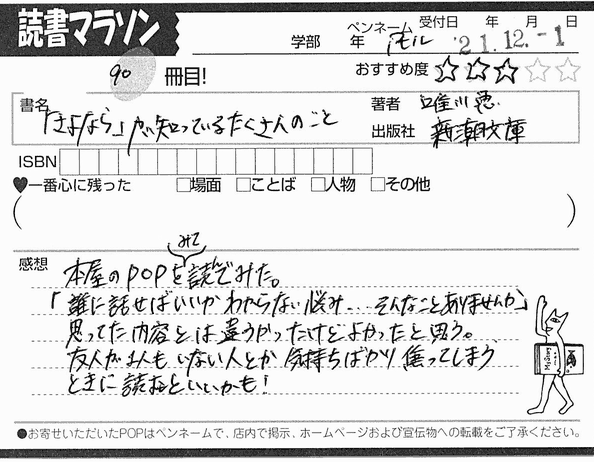 読書マラソン
学部 年 ペンネーム モル 受付日 年 月 日 '21.12.-1
90 冊目!
おすすめ度 ☆☆☆☆☆
書名 「さよなら」が知っているたくさんのこと
著者 唯川恵
出版社 新潮文庫
ISBN
♥一番心に残った □場面 □ことば □人物 □その他
( )
感想
本屋のPOPをみて読んでみた。
「誰に話せばいいかわからない悩み…そんなことありませんか」
思ってた内容とは違うかったけどよかったと思う。
友人が1人もいない人とか気持ちばかり焦ってしまう
ときに読むといいかも!
●お寄せいただいたPOPはペンネームで、店内で掲示、ホームページおよび宣伝物への転載をご了承ください。